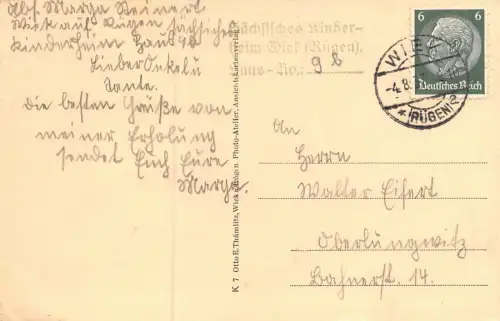 Abs. Marga Reinert
Wiek auf Rügen Sächsisches
Kinderheim Haus 9b
Lieber Onkel u
Tante.
Die besten Grüße von
meiner Erholung
sendet Euch Eure
Marga.
Sächsisches Kinder-
heim Wiek (Rügen).
Haus-No.: 9 b
K 7 Otto & Thämlitz, Wiek a. Rügen Photo-Atelier, Ansichtskartenverlag
6 6
Deutsches Reich
WIEK
-4.8.
* (RÜGEN)
An
Herrn
Walter Eifert
Oberlungwitz
Bahnerst. 14.